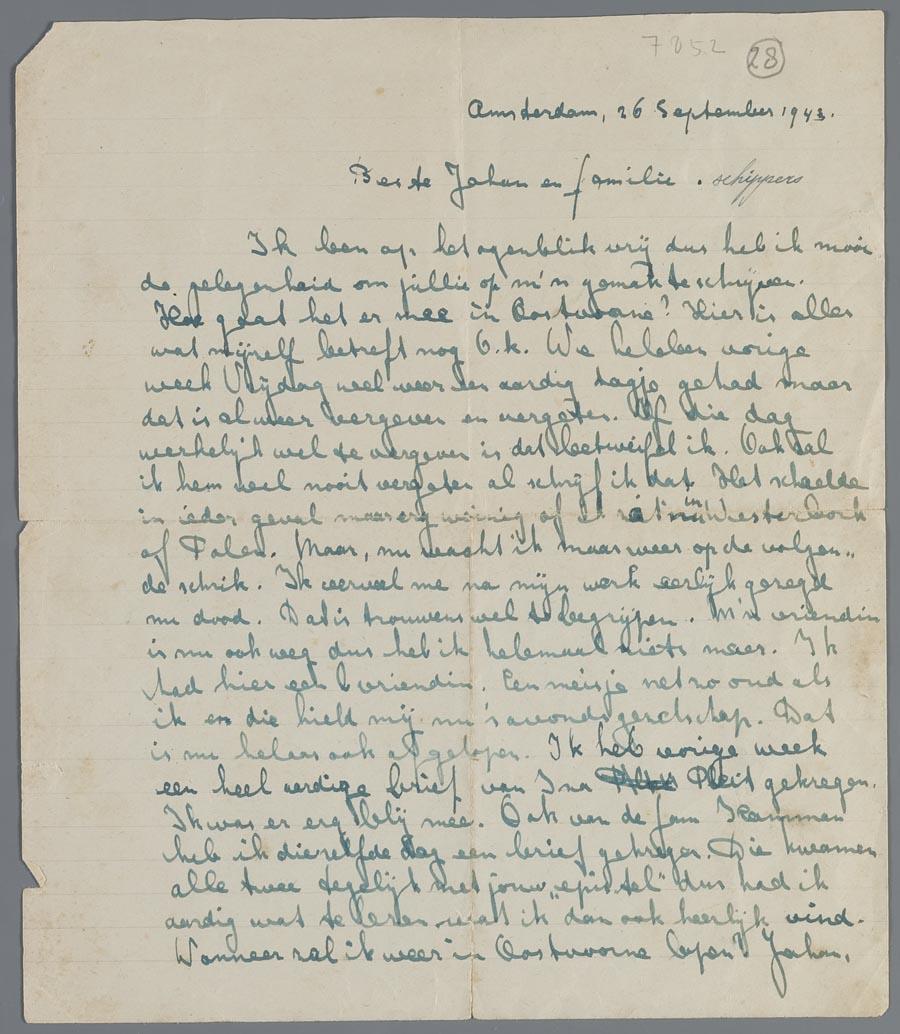 7852 28
Amsterdam, 26 September 1943.
Beste Johan en familie. schippers
Ik ben op het ogenblik vrij dus heb ik mooi
de gelegenheid om jullie op m'n gemak te schrijven.
Hoe gaat het er mee in Oostvoorne? Hier is alles
wat mijzelf betreft nog O.k. We hebben vorige
week Vrijdag wel weer een aardig dagje gehad maar
dat is al weer vergeven en vergeten. Of die dag
werkelijk wel te vergeven is dat betwijfel ik. Ook zal
ik hem wel nooit vergeten al schrijf ik dat. Het scheelde
in ieder geval maar erg weinig of ik zat nu in Westerbork
of Polen. Maar, nu wacht ik maar weer op de volgen„
de schrik. Ik verveel me na mijn werk eerlijk gezegd
nu dood. Dat is trouwens wel te begrijpen. M'n vriendin
is nu ook weg dus heb ik helemaal niets meer. Ik
had hier een vriendin. Een meisje net zo oud als
ik en die hield mij nu 's avonds gezelschap. Dat
is nu helaas ook afgelopen. Ik heb vorige week
een heel aardige brief van Ina Pleit gekregen.
Ik was er erg blij mee. Ook van de fam Kampman
heb ik diezelfde dag een brief gekregen. Die kwamen
alle twee tegelijk met jouw „epistel" dus had ik
aardig wat te lezen wat ik dan ook heerlijk vind.
Wanneer zal ik weer in Oostvoorne lopen? Johan,